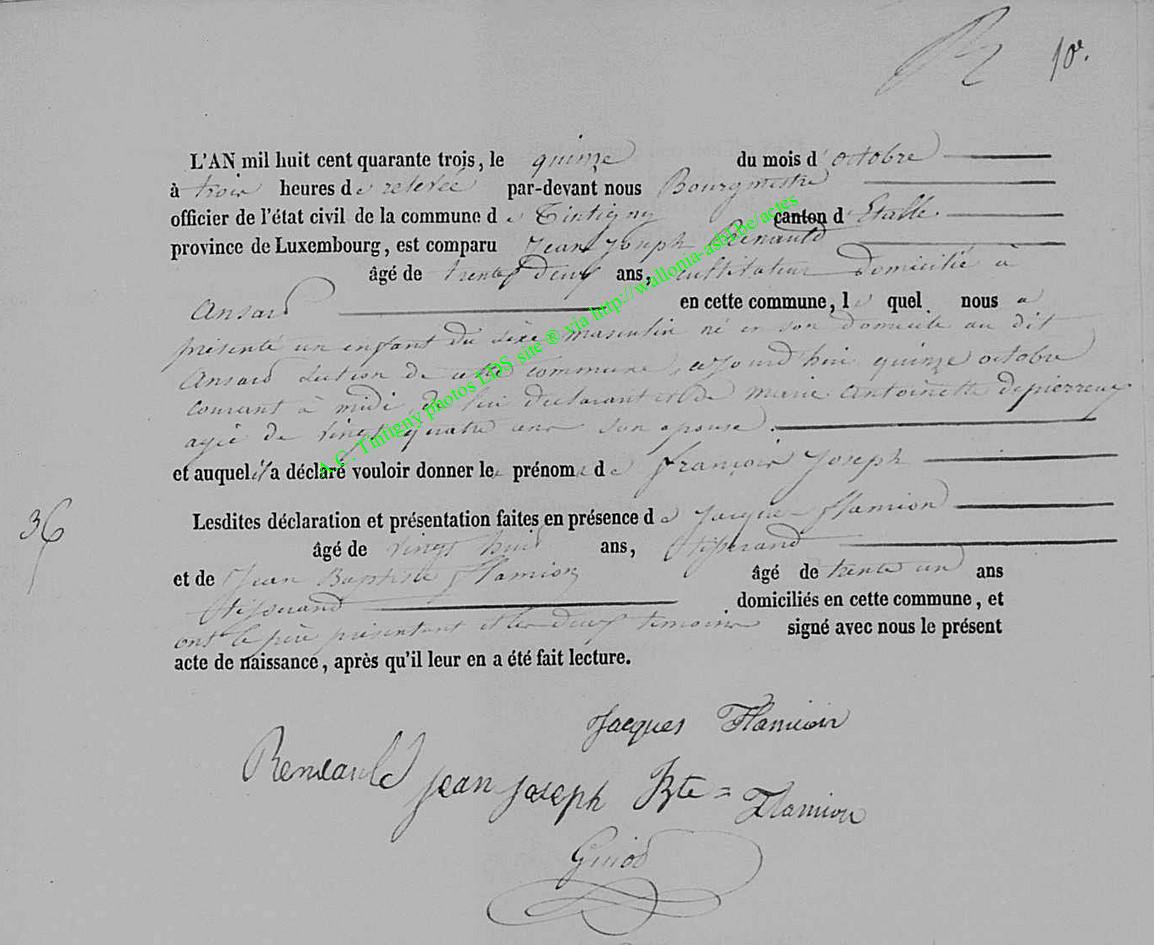 10e.
L'AN mil huit cent quarante trois, le quinze du mois d'octobre
à trois heures de relevée par-devant nous Bourgmestre
officier de l'état civil de la commune de Tintigny canton d'Etalle
province de Luxembourg, est comparu Jean Joseph Renauld
âgé de trente deux ans, cultivateur domicilié à
Ansart en cette commune, lequel nous a
présenté un enfant du sexe masculin né en son domicile au dit
Ansart section de cette commune, cejourd'hui quinze octobre
courant à midi de lui déclarant et de marie antoinette depierreux
agée de vingt quatre ans son épouse.
et auquel il a déclaré vouloir donner les prénoms de François Joseph
Lesdites déclaration et présentation faites en présence de Jacques Flamion
36
âgé de vingt huit ans, tisserand
et de Jean Baptiste Flamion âgé de trente un ans
tisserand domiciliés en cette commune, et
ont le père présentant et les deux témoins signé avec nous le présent
acte de naissance, après qu'il leur en a été fait lecture.
Jacques Flamion
Reneauld jean joseph Bte = Flamion
A.C. Tintigny photos LDS site ® via http://wallonia-asbl.be/actes